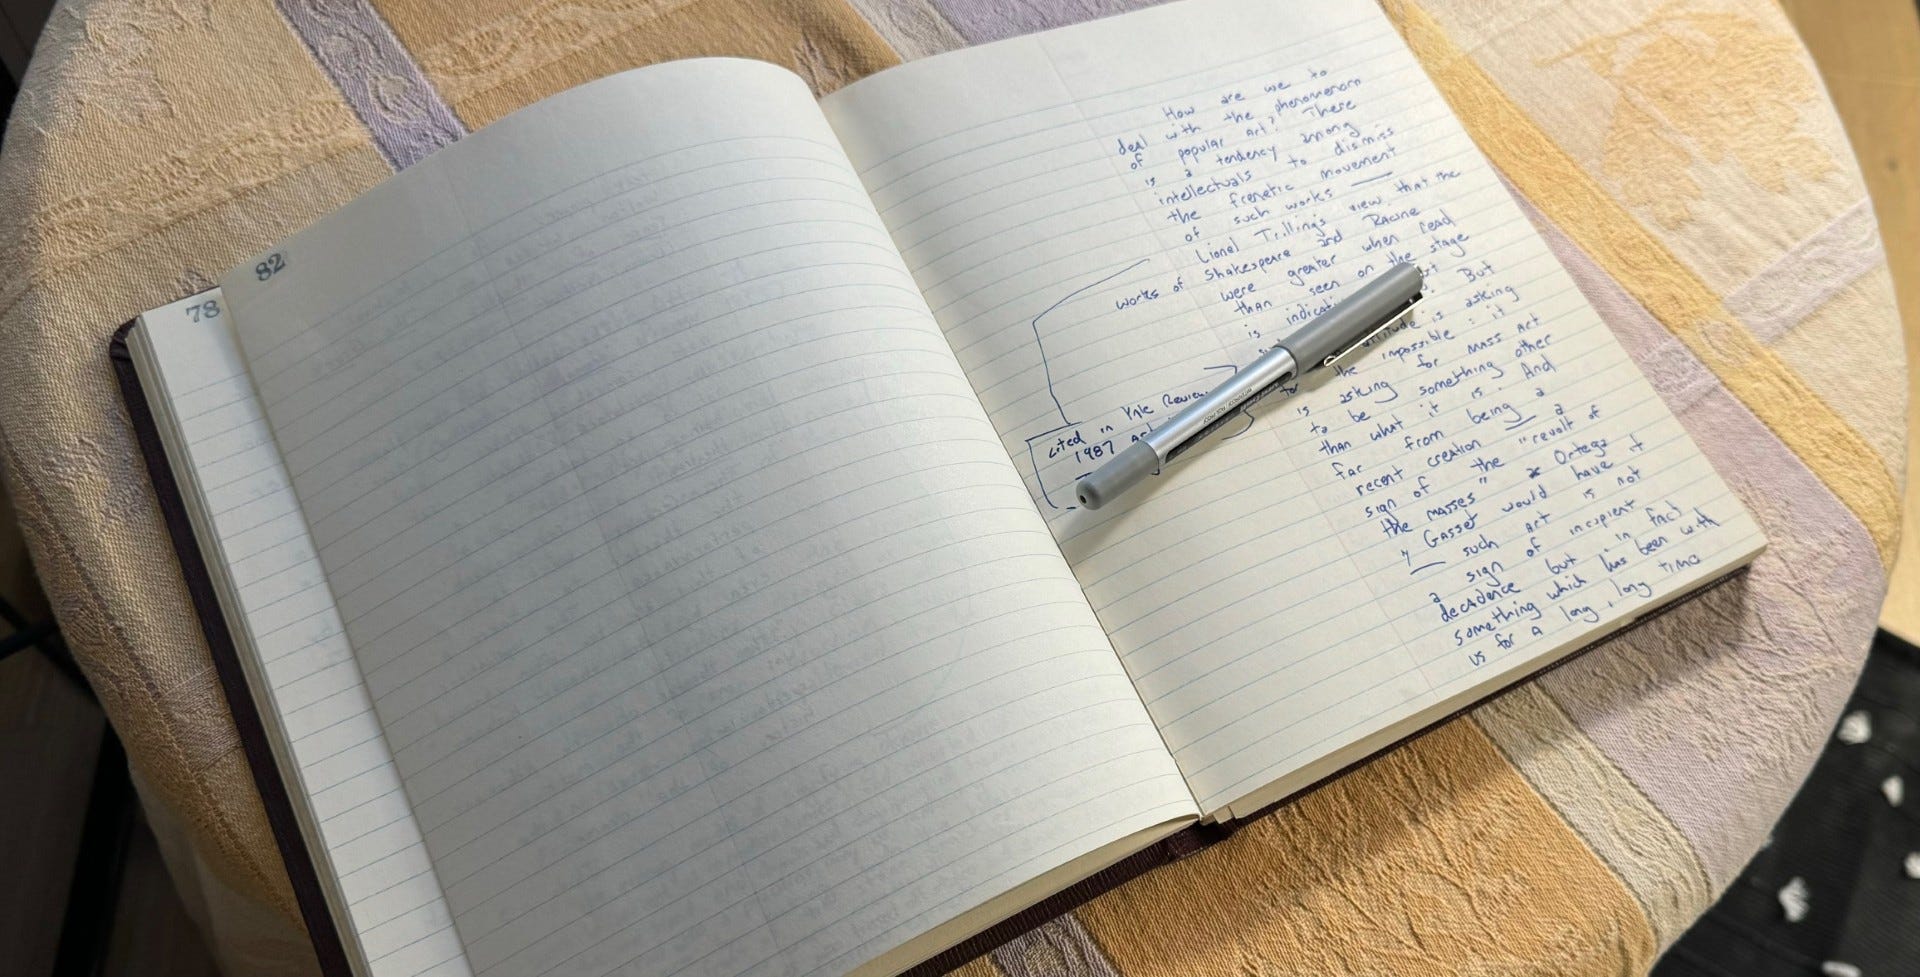 82
78
How are we to
deal with the phenomenon
of popular Art? There
is a tendency among
intellectuals to dismiss
the frenetic movement
of such works —
Lionel Trilling's view that the
works of Shakespeare and Racine
were greater when read
than seen on the stage
is But
attitude is asking
for the impossible : it
is asking for mass Art
to be something other
than what it is. And
far from being a
recent creation — a
sign of the "revolt of
the masses" as Ortega
y Gasset would have it
— such Art is not
a sign of incipient
decadence but in fact
something which has been with
us for a long, long time
cited in Yale Review
1987